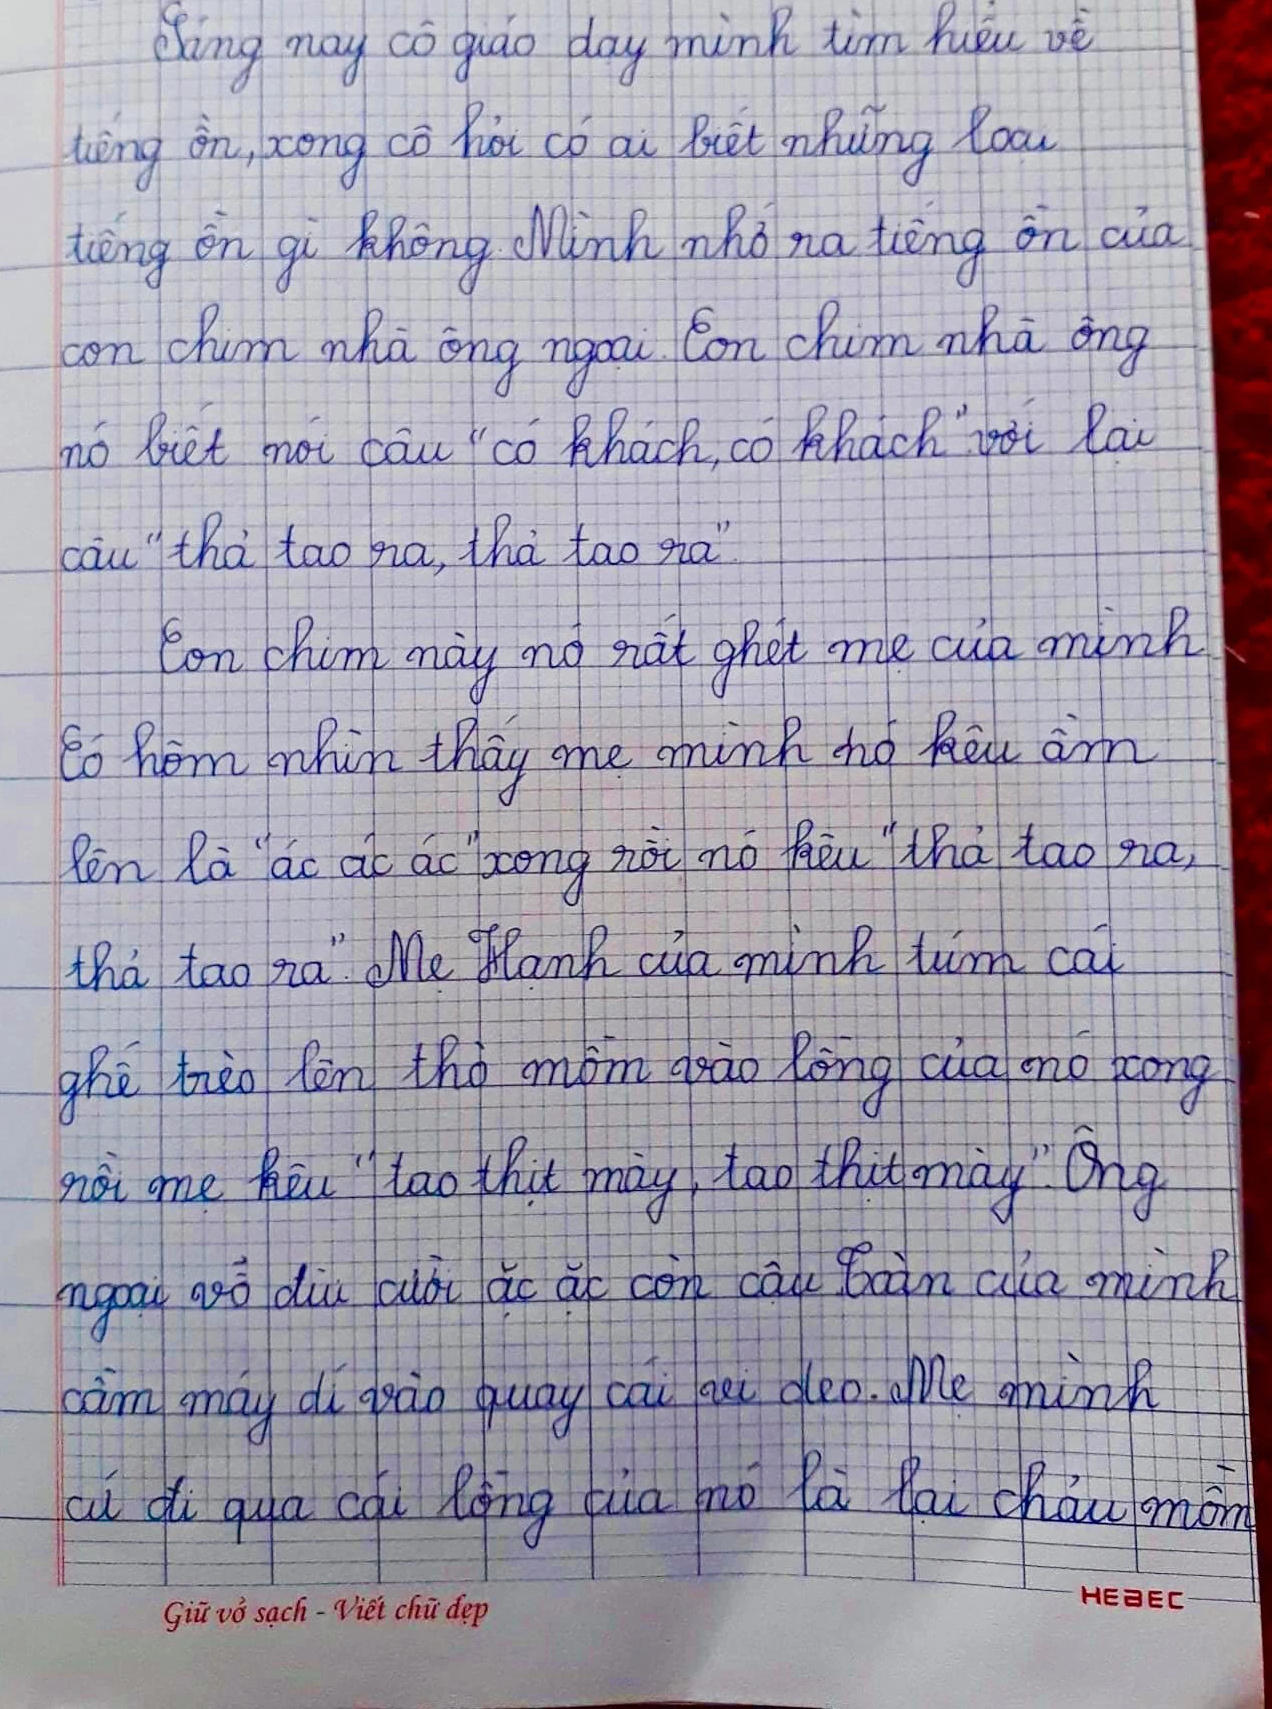 Sáng nay cô giáo dạy mình tìm hiểu về
tiếng ồn, xong cô hỏi có ai biết những loại
tiếng ồn gì không. Mình nhớ ra tiếng ồn của
con chim nhà ông ngoại. Con chim nhà ông
nó biết nói câu "có khách, có khách" với lại
câu "thả tao ra, thả tao ra"
Con chim này nó rất ghét mẹ của mình
Có hôm nhìn thấy mẹ mình nó kêu ầm
lên là "ác ác ác" xong rồi nó kêu "thả tao ra,
thả tao ra". Mẹ Hạnh của mình túm cái
ghế trèo lên thò mồm vào lồng của nó xong
rồi mẹ kêu "tao thịt mày, tao thịt mày". Ông
ngoại vỗ đùi cười ặc ặc còn cậu Toàn của mình
cầm máy dí vào quay cái vi deo. Mẹ mình
cứ đi qua cái lồng của nó là lại chảu mồm
Giữ vở sạch - Viết chữ đẹp
HEBEC